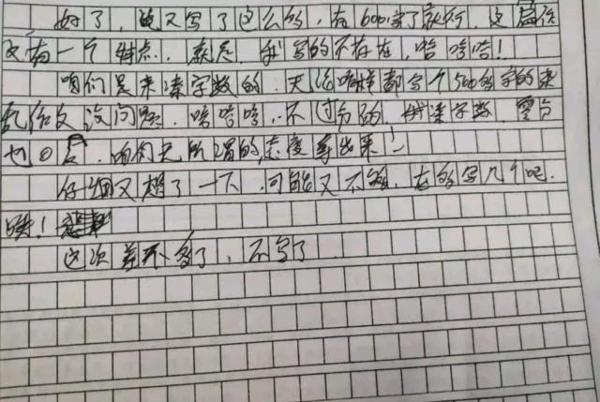 好了，也又写了这么多，有600字了就行，这篇作
文有一个特点，就是，我写的不存在，哈哈哈！
咱们是来凑字数的，无论咋样都写个500多字的杂
乱作文没问题，哈哈哈，不过分的，凑字数，零分
也，咱们无所谓的态度拿出来！
仔细又想了一下，可能又不够，在多写几个吧，
咦！
这次差不多了，不写了